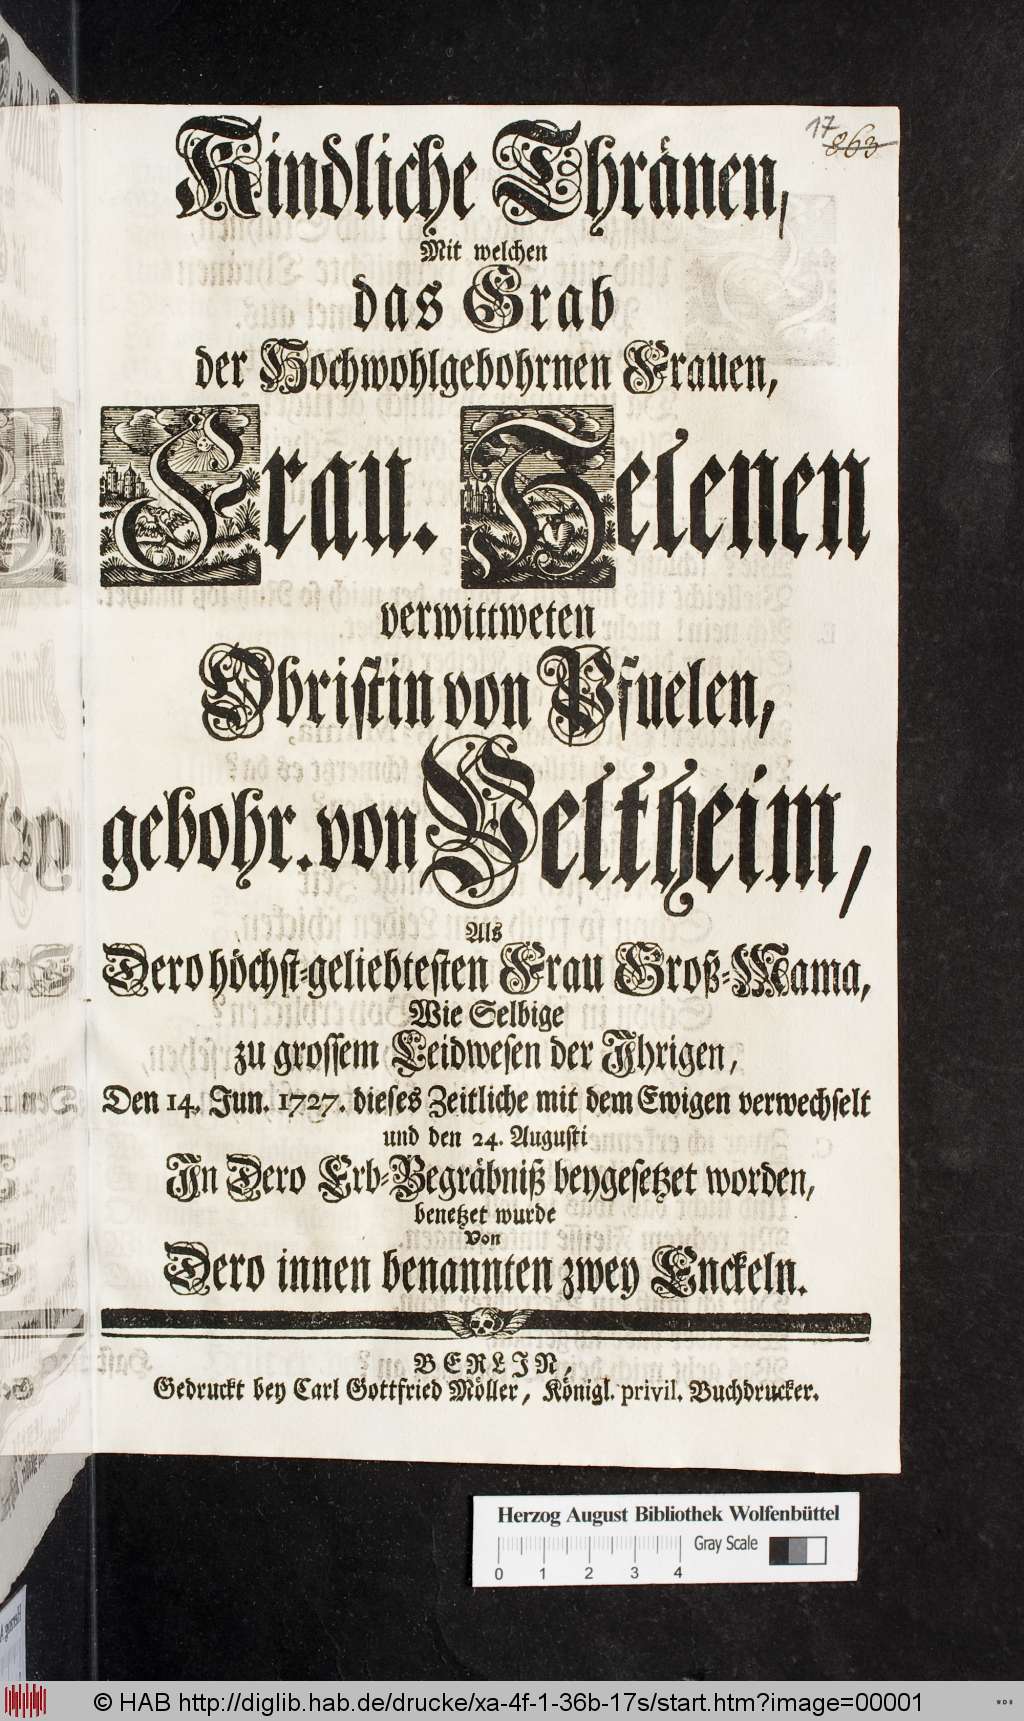 17
863
Kindliche Thränen,
Mit welchen
das Grab
der Hochwohlgebohrnen Frauen,
Frau. Helenen
verwittweten
Obristin von Pfuelen,
gebohr. von Veltheim,
Als
Dero höchst-geliebtesten Frau Groß-Mama,
Wie Selbige
zu grossem Leidwesen der Ihrigen,
Den 14. Jun. 1727. dieses Zeitliche mit dem Ewigen verwechselt
und den 24. Augusti
In Dero Erb-Begräbniß beygesetzet worden,
benetzet wurde
Von
Dero innen benannten zwey Enckeln.
BERLIN,
Gedruckt bey Carl Gottfried Möller, Königl. privil. Buchdrucker.
Herzog August Bibliothek Wolfenbüttel
Gray Scale
0 1 2 3 4
© HAB http://diglib.hab.de/drucke/xa-4f-1-36b-17s/start.htm?image=00001
WDB